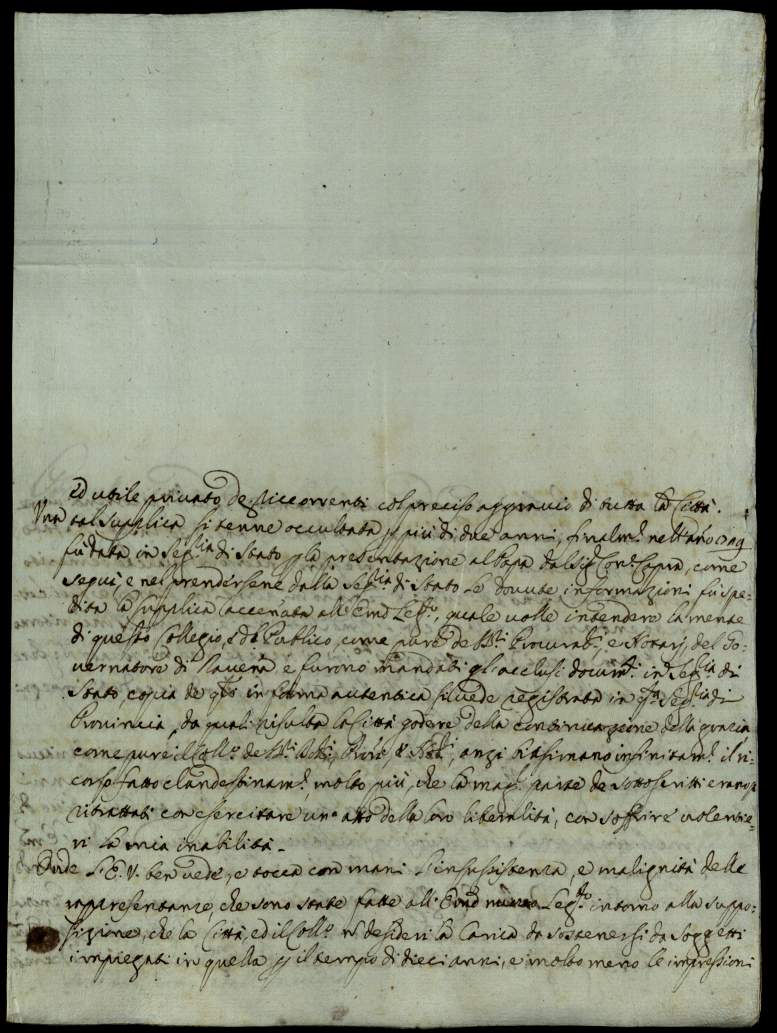 ed utile privato de Ricorrenti col preciso aggravio di tutta la Città.
Una tal supplica si tenne occultata p più di due anni, finalm.e nell'año
fù data in Seg.ria di Stato p la presentazione al Papa dal Sig.r Con.te Capra, come
seguì, e nel prendersene dalla Seg.ria di Stato le dovute informazioni fù spe-
dita la supplica accenata all'Emõ Leg.to, quale volle intendere la mente
di questo Collegio, e del Publico, come pure de Procurat.i, e Notarj, del Go-
vernatore di Ravena e furono mandati gl'acclusi docum.ti in Seg.ria di
Stato, copia de q.li in forma autentica si vede registrata in q.ta Seg.ria di
Provincia, da quali risulta la Città godere della continuazione della grazia
come pure il Coll.o de anzi biasimano infinitam.e il ri-
corso fatto clandestinam.e molto più, che la mag.r parte de sottoscritti erano
ritrattati con esercitare un'atto della loro liberalità, con soffrire volentie-
ri la mia inabilità.
Onde l'E.V. ben vede, e tocca con mani l'insussistenza, e malignità delle
rappresentanze, che sono state fatte all'Emõ Leg.to intorno alla suppo-
sizione, che la Città, ed il Coll.o ñ desideri la Carica da sostenersi da Soggetti
impiegati in quella p il tempo di dieci anni, e molto meno le impressioni